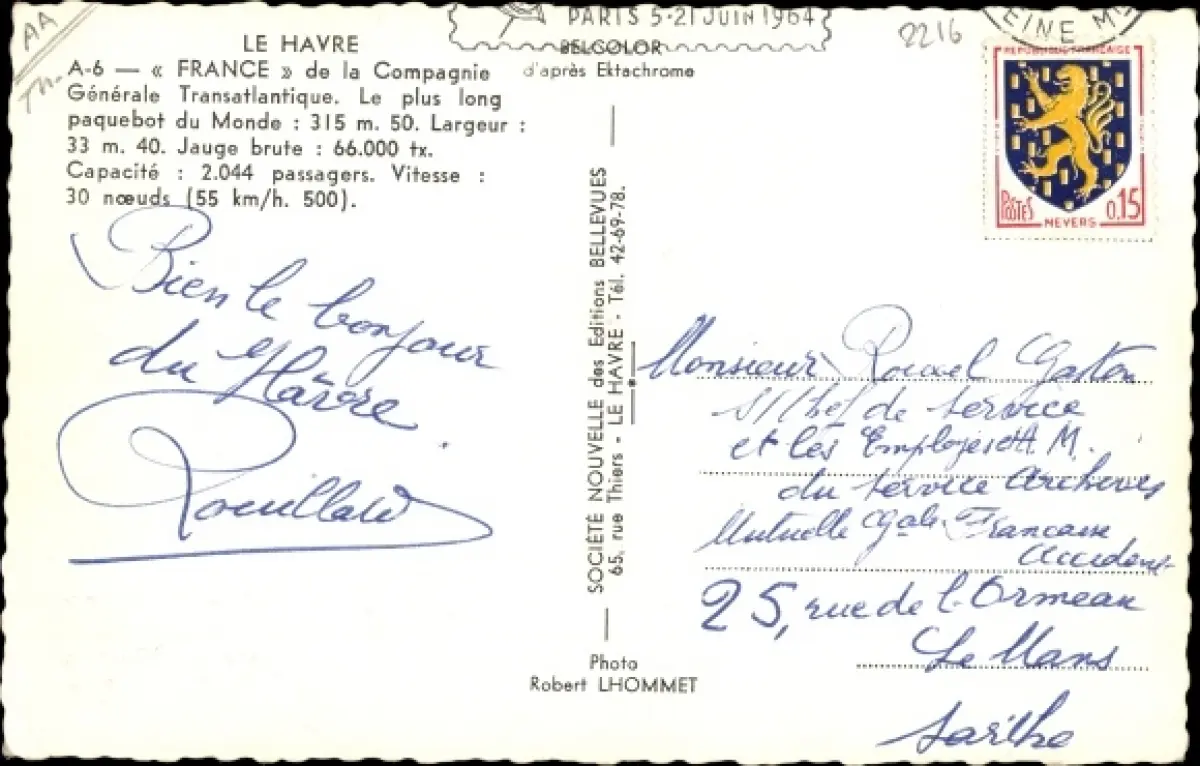 AA
PARIS 5-21 JUIN 1964
2216
EINE Mme
LE HAVRE
BELCOLOR
d'après Ektachrome
A-6 — « FRANCE » de la Compagnie
Générale Transatlantique. Le plus long
paquebot du Monde : 315 m. 50. Largeur :
33 m. 40. Jauge brute : 66.000 tx.
Capacité : 2.044 passagers. Vitesse :
30 nœuds (55 km/h. 500).
RÉPUBLIQUE FRANÇAISE
POSTES
0,15
NEVERS
Bien le bonjour
du Hâvre
Rouillard
SOCIÉTÉ NOUVELLE des Editions BELLEVUES
65, rue Thiers - LE HAVRE - Tél. 42-69-78.
Photo
Robert LHOMMET
Monsieur Rouxel Gaston
S/Chef de service
et les Employés A. M.
du service Archives
Mutuelle Gale Francaise
Accidents
25, rue de l'Ormeau
Le Mans
Sarthe